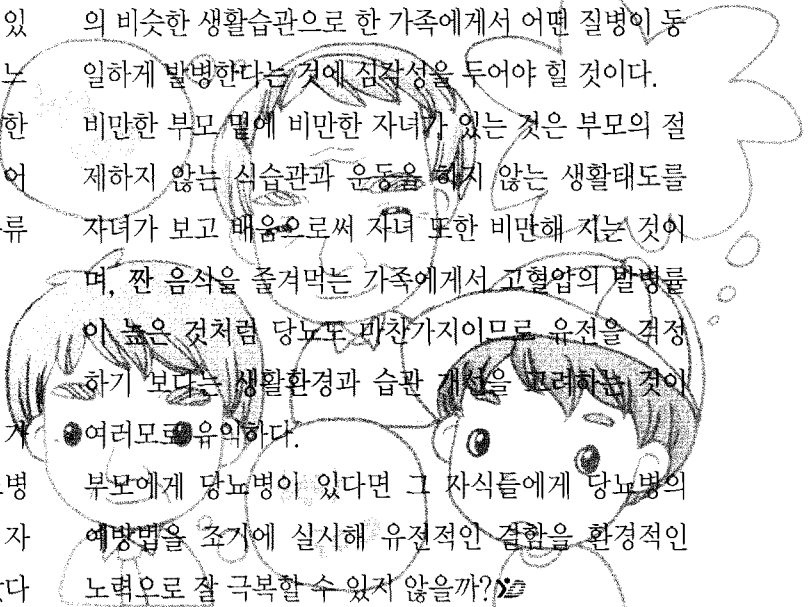 있
느
한
어
류
의 비슷한 생활습관으로 한 가족에게서 어떤 질병이 동
일하게 발병한다는 것에 심각성을 두어야 힐 것이다.
비만한 부모 밑에 비만한 자녀가 있는 것은 부모의 절
제하지 않는 식습관과 운동을 하지 않는 생활태도를
자녀가 보고 배움으로써 자녀 또한 비만해 지는 것이
며, 짠 음식을 즐겨먹는 가족에게서 고혈압의 발병률
이 높은 것처럼 당뇨도 마찬가지이므로 유전을 걱정
하기 보다는 생활환경과 습관 개선을 고려하는 것이
여러모로 유익하다.
부모에게 당뇨병이 있다면 그 자식들에게 당뇨병의
예방법을 조기에 실시해 유전적인 결함을 환경적인
노력으로 잘 극복할 수 있지 않을까?
병
자
다